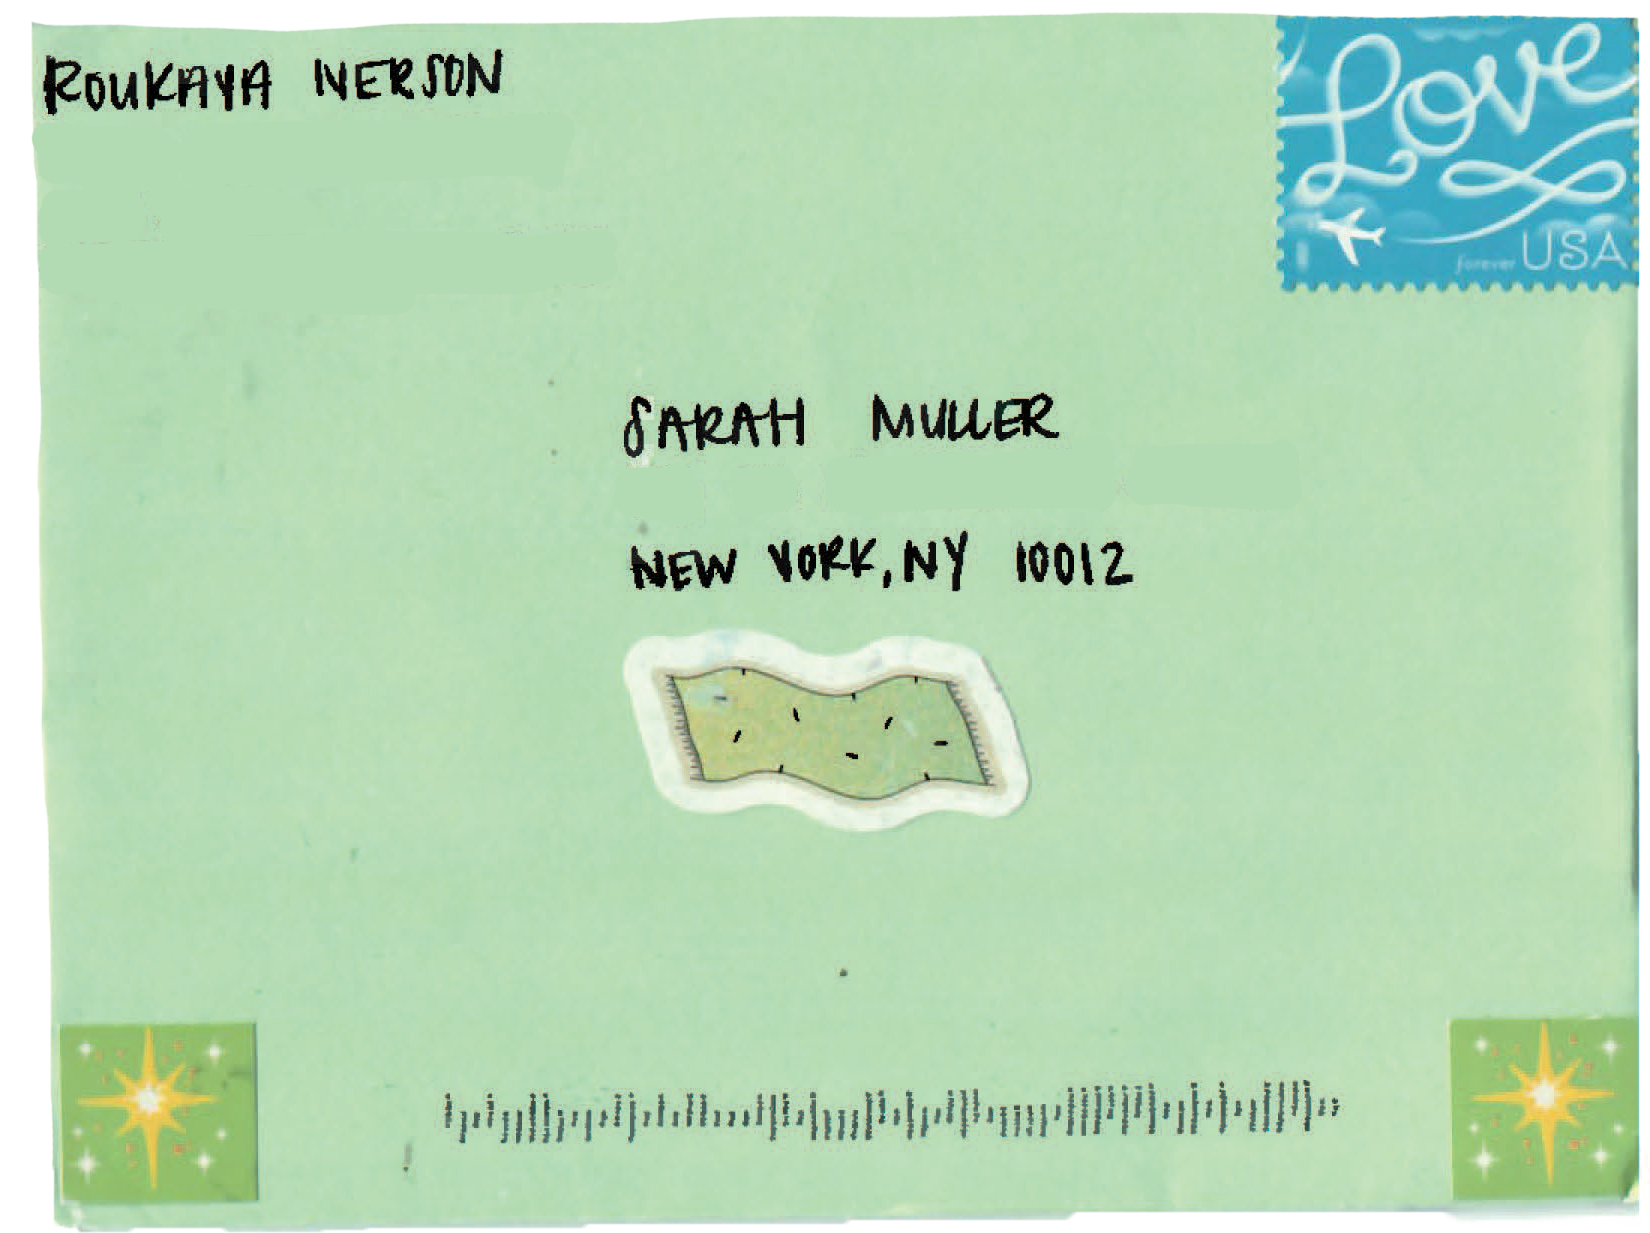 ROUKAYA IVERSON
Love
forever USA
SARAH MULLER
NEW YORK, NY 10012